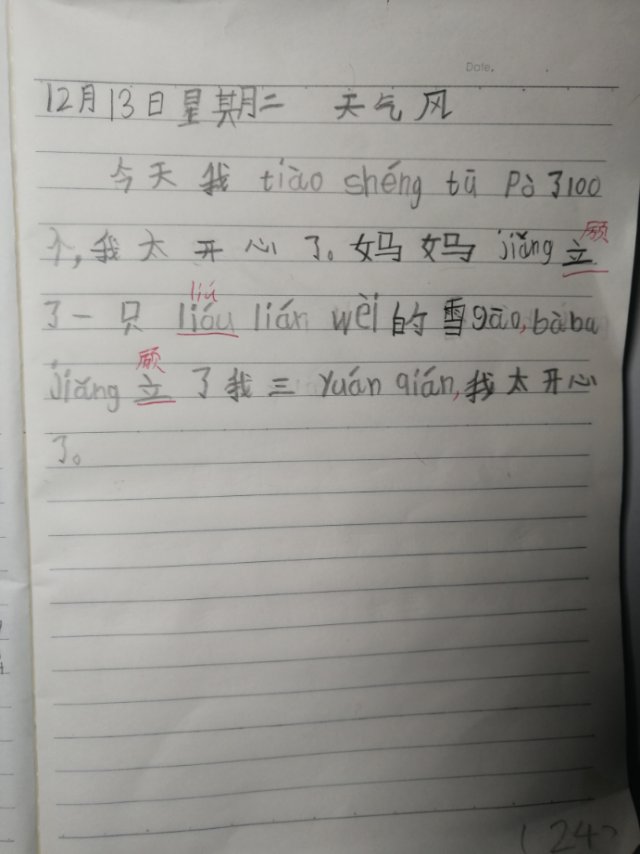 Date.
12月13日星期二 天气风
今天我 tiào shéng tū Pò了100
个,我太开心了。妈妈 jiǎng 立
了一只 lióu lián wèi 的雪gāo,bàba
jiǎng 立了我三 yuán qián,我太开心
了。
(24)